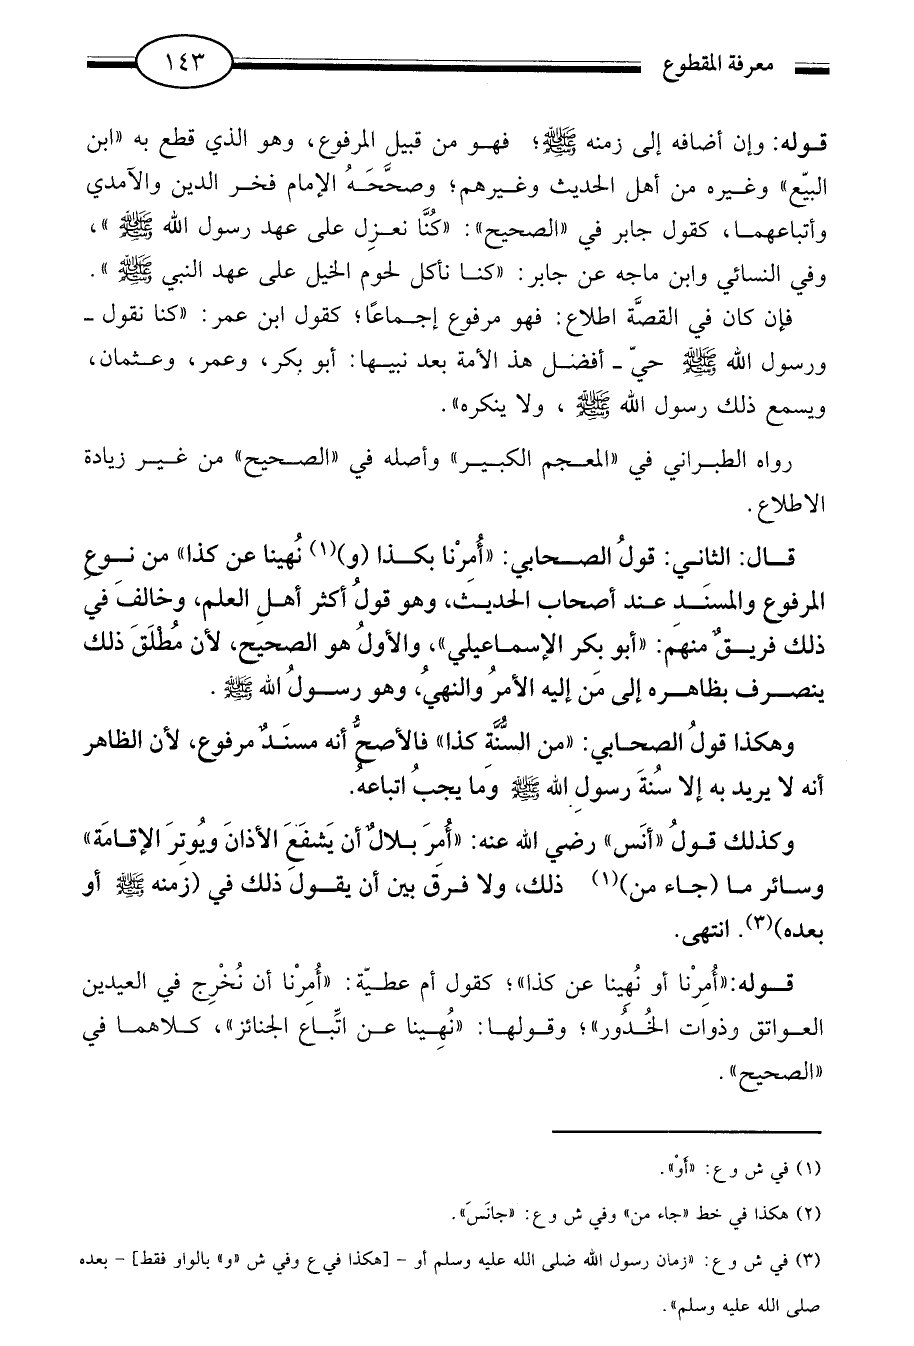 معرفة المقطوع ١٤٣
قـوله: وإن أضافه إلى زمنه ﷺ؛ فهـو من قبيل المرفوع، وهو الذي قطع به «ابن
البيّع» وغيره من أهل الحديث وغيرهم؛ وصحَّحَـهُ الإمام فخـر الدين والآمدي
وأتباعهمـا، كقول جابر في «الصحيح»: «كُنَّا نعـزل على عهد رسول الله ﷺ»،
وفي النسائي وابن ماجه عن جابر: «كنـا نأكل لحوم الخيل على عهد النبي ﷺ».
فإن كان في القصَّة اطلاع: فهو مرفوع إجـماعًا؛ كقول ابن عمر: «كنا نقول ـ
ورسول الله ﷺ حيّ ـ أفضـل هذ الأمة بعد نبيـها: أبو بكر، وعمر، وعـثمان،
ويسمع ذلك رسول الله ﷺ، ولا ينكره».
رواه الطبـراني في «المعـجم الكبيـر» وأصله في «الصـحيح» من غـير زيادة
الاطلاع.
قـال: الثاني: قولُ الصـحابي: «أُمِرْنا بكـذا (و)(١) نُهينا عن كذا» من نـوعِ
المرفوع والمسنَـد عنـد أصحاب الحديـث، وهو قولُ أكثر أهـلِ العلم، وخالفَ في
ذلك فريـقٌ منهم: «أبو بكر الإسمـاعيلي»، والأولُ هو الصحيح، لأن مُطْلَقَ ذلك
ينصـرف بظاهـره إلى مَن إليه الأمرُ والنهيُ، وهو رسـولُ الله ﷺ.
وهكذا قولُ الصحـابي: «من السُّنَّة كذا» فالأصحُّ أنه مسندٌ مرفوع، لأن الظاهر
أنه لا يريد به إلا سُنةَ رسولِ الله ﷺ وما يجبُ اتباعهُ.
وكذلك قـولُ «أنَس» رضي الله عنه: «أُمِرَ بـلالٌ أن يَشفَعَ الأذانَ ويُوتِرَ الإقـامَة»
وسـائر ما (جـاء من)(١) ذلك، ولا فـرقَ بين أن يقـولَ ذلك في (زمنه ﷺ أو
بعده)(٣). انتهى.
قـوله: «أُمِرْنا أو نُهِينا عن كذا»؛ كقول أم عطيّة: «أُمِرْنا أن نُخْرِج في العيدين
العـواتق وذوات الخُدُور»؛ وقولهـا: «نُهـينا عـن اتِّباع الجنائز»، كـلاهمـا في
«الصحيح».
(١) في ش و ع: «أَوْ».
(٢) هكذا في خط «جاء من» وفي ش و ع: «جانَسَ».
(٣) في ش و ع: «زمان رسول الله ضلى الله عليه وسلم أو – [هكذا في ع وفي ش «و» بالواو فقط] – بعده
صلى الله عليه وسلم».